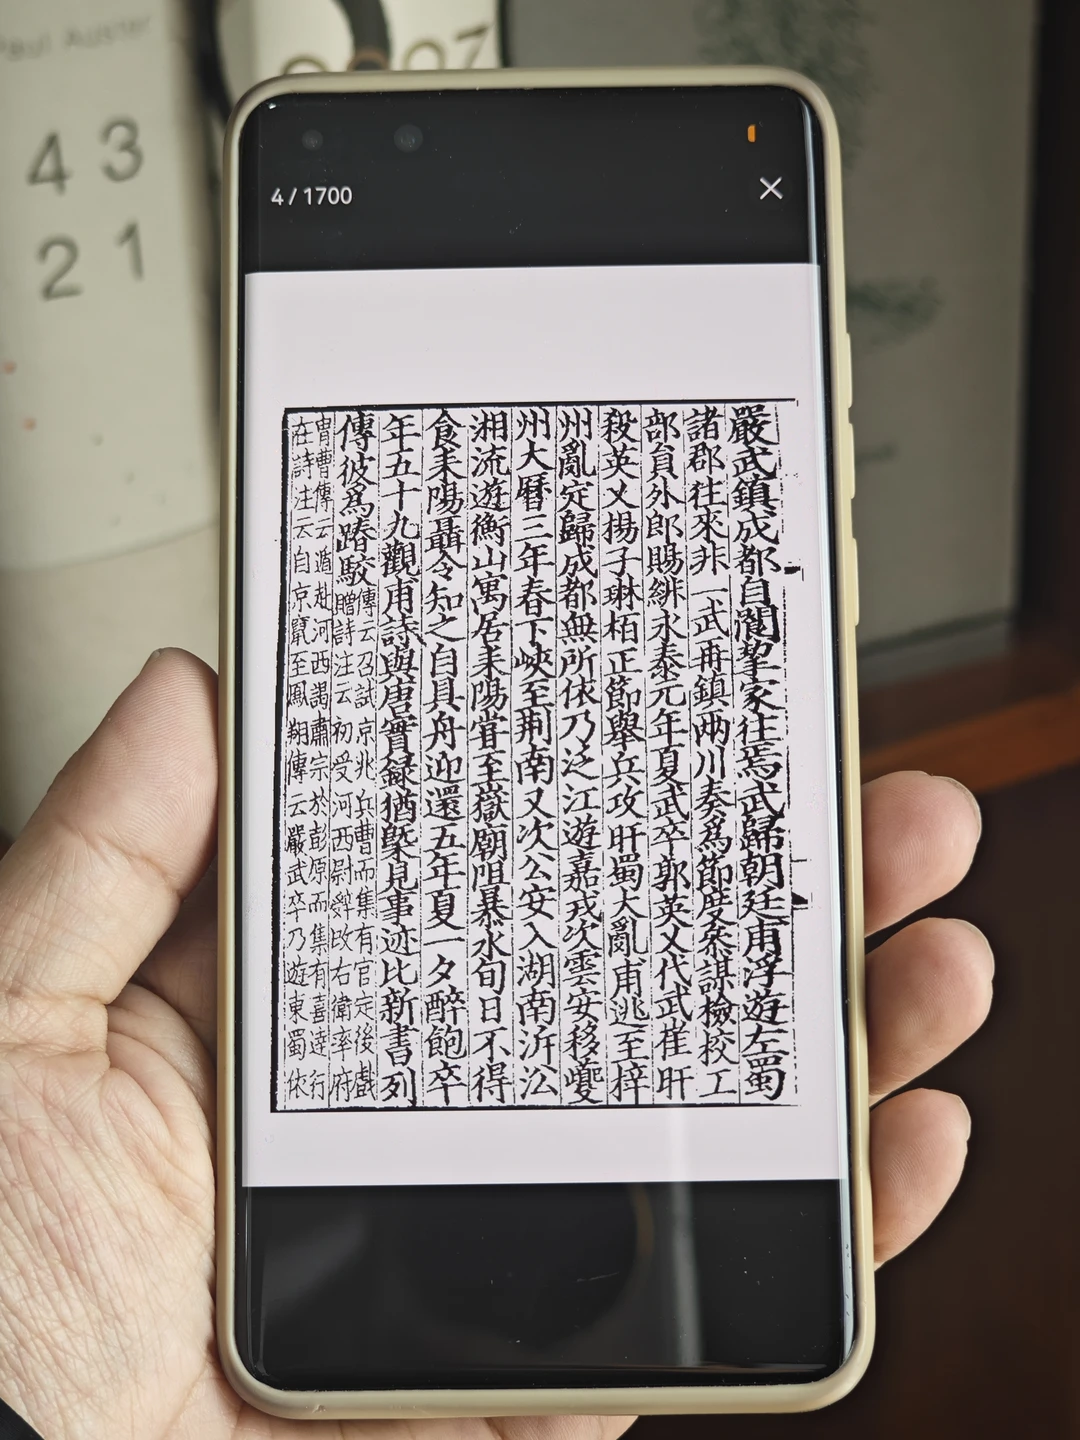 Paul Auster
4 3
2 1
4/1700
嚴武鎮成都自閬挈家往焉武歸朝廷甫浮遊左蜀
諸郡往來非一武再鎮兩川奏爲節度叅謀檢校工
部負外郎賜緋永泰元年夏武卒郭英乂代武崔旰
殺英乂揚子琳栢正節舉兵攻旰蜀大亂甫逃至梓
州亂定歸成都無所依乃泛江遊嘉戎次雲安移夔
州大曆三年春下峽至荆南又次公安入湖南泝㳂
湘流遊衡山寓居耒陽甞至嶽廟阻暴水旬日不得
食耒陽聶令知之自具舟迎還五年夏一夕醉飽卒
年五十九觀甫詩與唐實録猶槩見事迹比新書列
傳彼爲踳駮傳云召試京兆兵曹而集有官定後戲
贈詩注云初受河西尉辝改右衞率府
胄曹傳云遁赴河西謁肅宗於彭原而集有喜達行
在詩注云自京竄至鳳翔傳云嚴武卒乃遊東蜀依